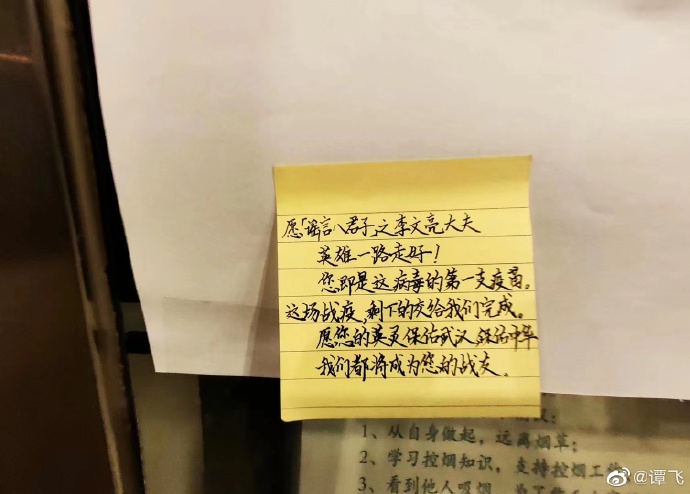 愿「谣言八君子」之李文亮大夫
英雄一路走好！
您即是这病毒的第一支疫苗。
这场战疫，剩下的交给我们完成。
愿您的英灵保佑武汉，保佑中华
我们都将成为您的战友。
1、从自身做起，远离烟草；
2、学习控烟知识，支持控烟工
3、看到他人吸烟
@谭飞